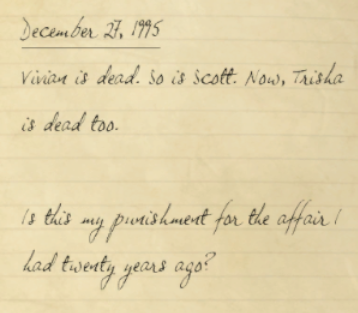 December 27, 1995
Vivian is dead. So is Scott. Now, Trisha
is dead too.
Is this my punishment for the affair I
had twenty years ago?